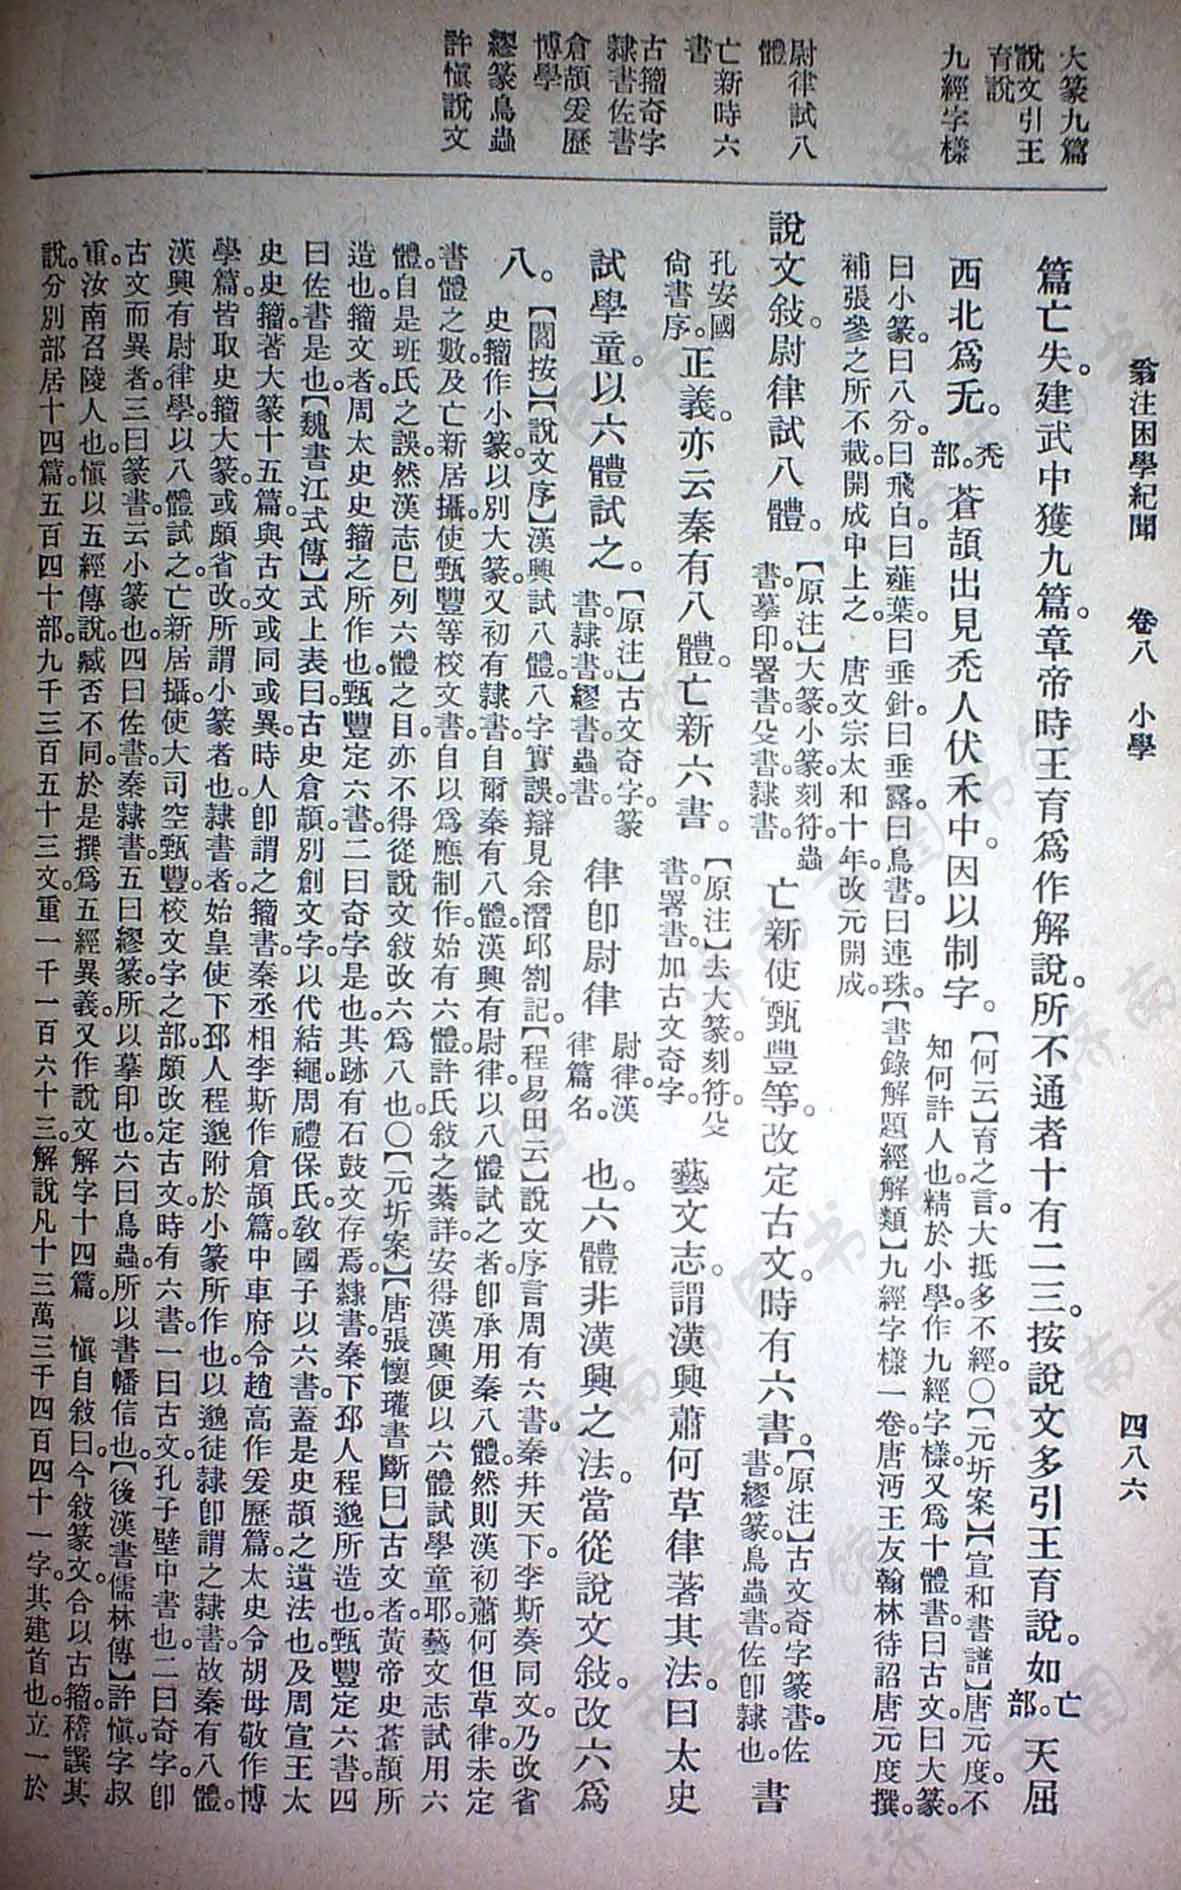 翁注困學紀聞　卷八　小學　四八六
大篆九篇
說文引王
育說
九經字樣
尉律試八
體
亡新時六
書
古籀奇字
隸書佐書
倉頡爰歷
博學
繆篆鳥蟲
許愼說文
篇亡失。建武中獲九篇。章帝時王育爲作解說。所不通者十有二三。按說文多引王育說。如亡部。天屈
西北爲无。禿部。蒼頡出見禿人伏禾中。因以制字。【何云】育之言。大抵多不經。〇【元圻案】【宣和書譜】唐元度。不
知何許人也。精於小學。作九經字樣。又爲十體書。曰古文。曰大篆。
曰小篆。曰八分。曰飛白。曰薤葉。曰垂針。曰垂露。曰鳥書。曰連珠。【書錄解題經解類】九經字樣一卷。唐沔王友翰林待詔唐元度撰。
補張參之所不載。開成中上之。　唐文宗太和十年。改元開成。
說文敍。尉律試八體。【原注】大篆。小篆。刻符。蟲
書。摹印。署書。殳書。隸書。亡新使甄豐等。改定古文。時有六書。【原注】古文奇字篆書。佐
書。繆篆。鳥蟲書。佐卽隸也。書
孔安國
尙書序。正義。亦云秦有八體。亡新六書。【原注】去大篆。刻符。殳
書。署書。加古文奇字。藝文志。謂漢興蕭何草律著其法。曰太史
試學童。以六體試之。【原注】古文奇字。篆
書。隸書。繆書。蟲書。律卽尉律尉律。漢
律篇名。也。六體非漢興之法。當從說文敍。改六爲
八。【閻按】【說文序】漢興試八體。八字實誤。辯見余潛邱劄記。【程易田云】說文序言周有六書。秦幷天下。李斯奏同文。乃改省
史籀作小篆。以別大篆。又初有隸書。自爾秦有八體。漢興有尉律。以八體試之者。卽承用秦八體。然則漢初蕭何但草律。未定
書體之數。及亡新居攝。使甄豐等校文書。自以爲應制作。始有六體。許氏敍之綦詳。安得漢興便以六體試學童耶。藝文志試用六
體。自是班氏之誤。然漢志已列六體之目。亦不得從說文敍改六爲八也。〇【元圻案】【唐張懷瓘書斷曰】古文者。黃帝史蒼頡所
造也。籀文者。周太史史籀之所作也。甄豐定六書。二曰奇字是也。其跡有石鼓文存焉。隸書。秦下邳人程邈所造也。甄豐定六書。四
曰佐書是也。【魏書江式傳】式上表曰。古史倉頡。別創文字。以代結繩。周禮保氏。敎國子以六書。蓋是史頡之遺法也。及周宣王太
史史籀。著大篆十五篇。與古文或同或異。時人卽謂之籀書。秦丞相李斯作倉頡篇。中車府令趙高作爰歷篇。太史令胡毋敬作博
學篇。皆取史籀大篆。或頗省改。所謂小篆者也。隸書者。始皇使下邳人程邈附於小篆所作也。以邈徒隸。卽謂之隸書。故秦有八體。
漢興有尉律學。以八體試之。亡新居攝。使大司空甄豐。校文字之部。頗改定古文。時有六書。一曰古文。孔子壁中書也。二曰奇字。卽
古文而異者。三曰篆書。云小篆也。四曰佐書。秦隸書。五曰繆篆。所以摹印也。六曰鳥蟲。所以書幡信也。【後漢書儒林傳】許愼。字叔
重。汝南召陵人也。愼以五經傳說。臧否不同。於是撰爲五經異義。又作說文解字十四篇。　愼自敍曰。今敍篆文。合以古籀。稽譔其
說。分別部居十四篇。五百四十部。九千三百五十三文。重一千一百六十三。解說凡十三萬三千四百四十一字。其建首也。立一於